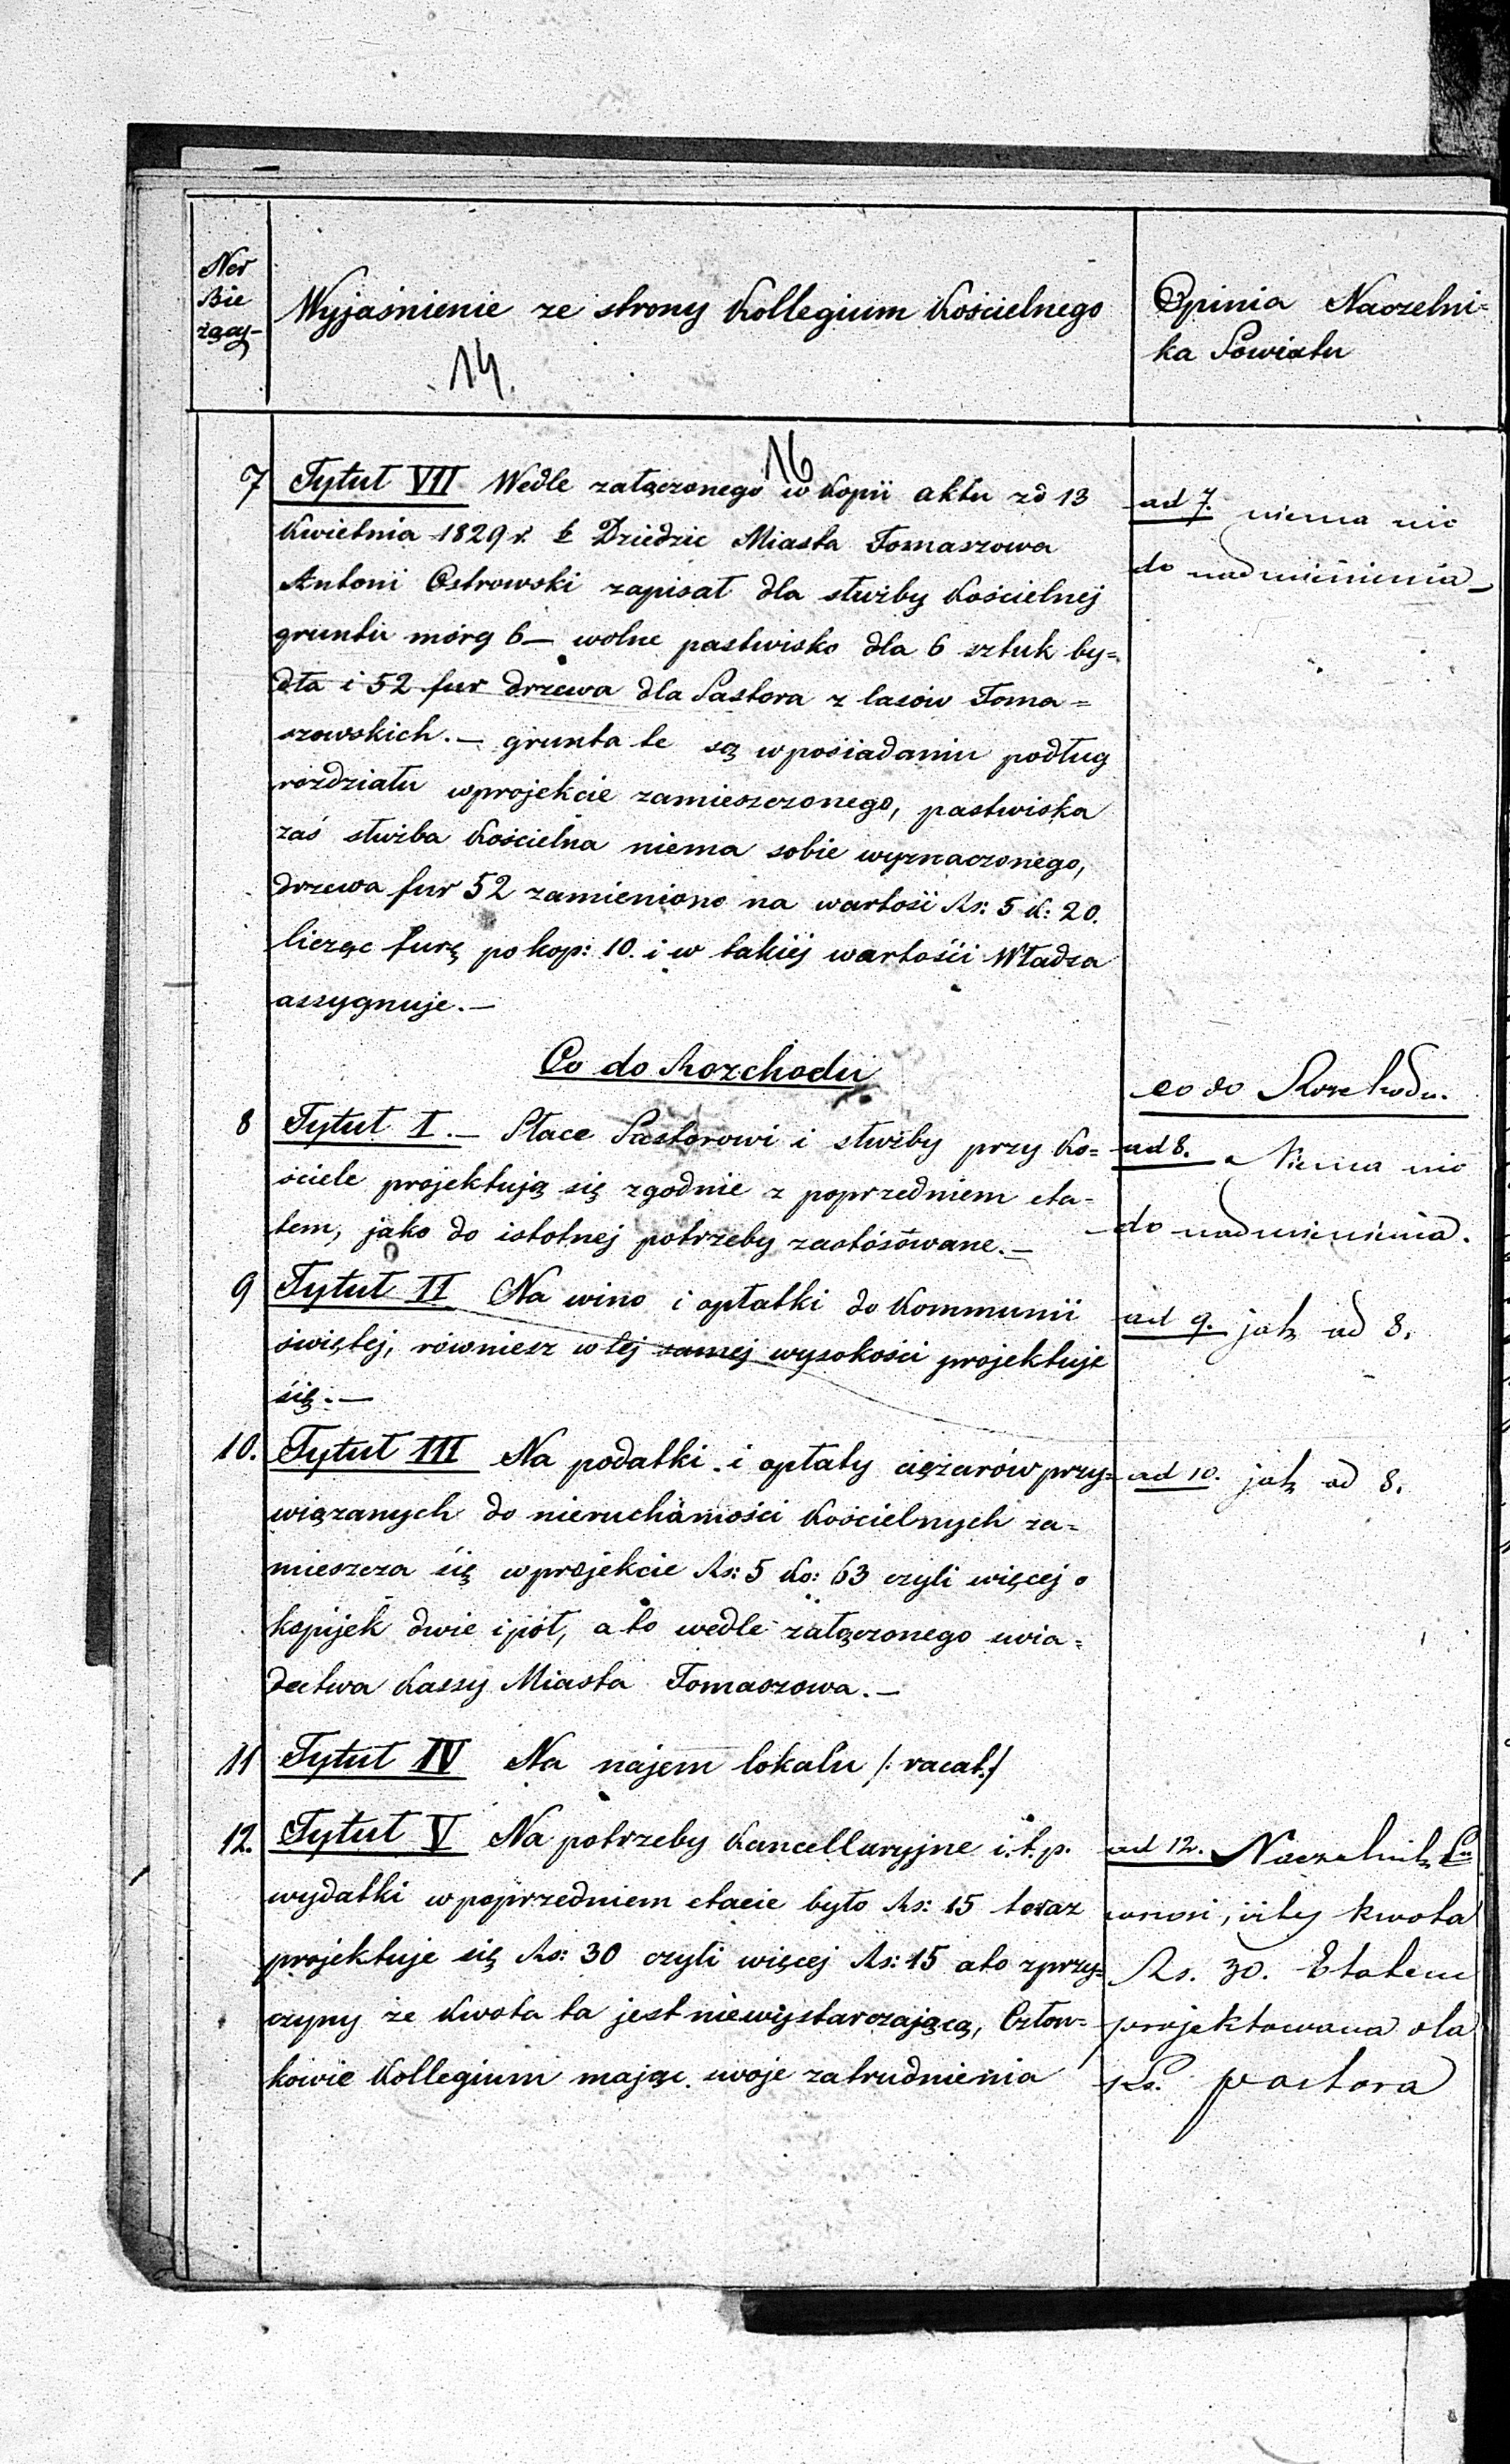 Ner
Bie
żący
Wyjaśnienie ze strony Kollegium Kościelnego
14.
Opinia Naczelni=
ka Powiatu
16
7 Tytuł VII Wedle załączonego w Kopii aktu zd 13
Kwietnia 1829 r. Dziedzic Miasta Tomaszowa
Antoni Ostrowski zapisał dla służby Kościelnej
gruntu mórg 6 — wolne pastwisko dla 6 sztuk by=
dła i 52 fur drzewa dla Pastora z lasów Toma=
szowskich. — grunta te są w posiadaniu podług
rozdziału w projekcie zamieszczonego, pastwiska
zaś służba Kościelna niema sobie wyznaczonego,
drzewa fur 52 zamieniono na wartość Rs: 5 K: 20.
licząc furę po kop: 10. i w takiéj wartości Władza
assygnuje. —
ad 7. niema nic
do nadmienienia —
Co do Rozchodu
co do Rozchodu.
8 Tytuł I. — Płace Pastorowi i służby przy Ko=
ściele projektują się zgodnie z poprzedniem eta=
tem, jako do istotnej potrzeby zastósowane. —
ad 8. Niema nic
do nadmienienia.
9 Tytuł II Na wino i opłatki do Kommunii
świętej, równiesz w tej samej wysokości projektuje
się. —
ad 9. jak ad 8.
10. Tytuł III Na podatki i opłaty ciężarów przy=
wiązanych do nieruchomości Kościelnych za=
mieszcza się w projekcie Rs: 5 Ko: 63 czyli więcej o
kopijek dwie i pół, a to wedle załączonego świa=
dectwa Kassy Miasta Tomaszowa. —
ad 10. jak ad 8.
11 Tytuł IV Na najem lokalu /: vacat :/
12. Tytuł V Na potrzeby Kancellaryjne i. t. p.
wydatki w poprzedniem etacie było Rs: 15 teraz
projektuje się Rs: 30 czyli więcej Rs: 15 a to z przy=
czyny że Kwota ta jest niewystarczającą, Człon=
kowie Kollegium mając swoje zatrudnienia
ad 12. Naczelnik Pu
wnosi, iżby kwota
Rs. 30. Etatem
projektowana dla
Ks. pastora